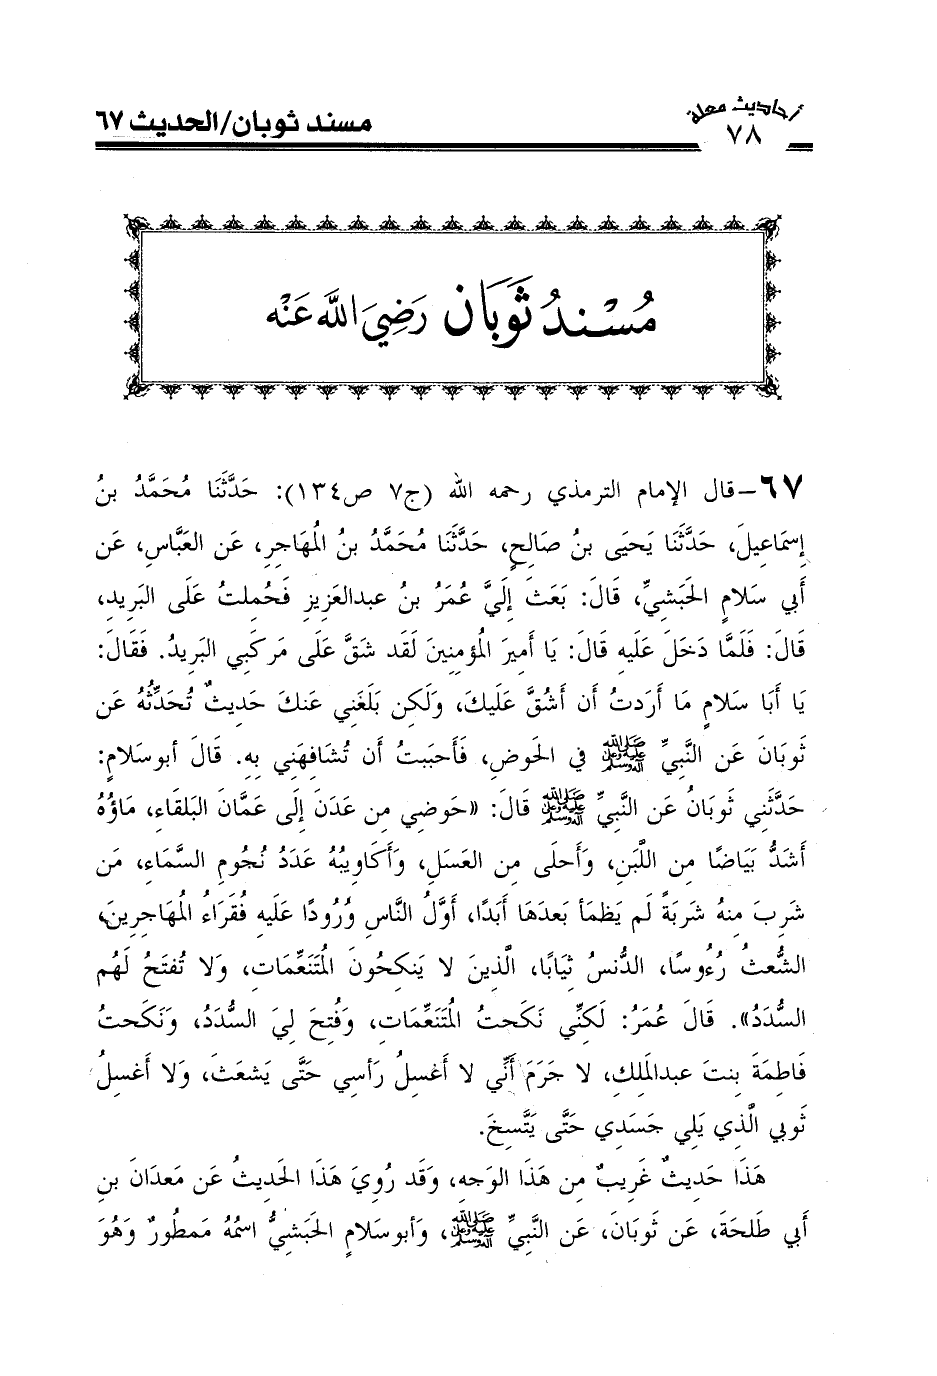 أحاديث معلة
٧٨
مسند ثوبان/الحديث ٦٧
مُسْنَدُ ثَوْبَان رَضِيَ اللَّه عَنْه
٦٧-قال الإمام الترمذي رحمه الله (ج٧ ص١٣٤): حَدَّثَنَا مُحَمَّدُ بنُ
إِسمَاعِيلَ، حَدَّثَنَا يَحيَى بنُ صَالِحٍ، حَدَّثَنَا مُحَمَّدُ بنُ المُهَاجِرِ، عَنِ العَبَّاسِ، عَن
أَبِي سَلامٍ الحَبَشِيِّ، قَالَ: بَعَثَ إِلَيَّ عُمَرُ بنُ عبدالعَزِيزِ فَحُمِلتُ عَلَى البَرِيدِ،
قَالَ: فَلَمَّا دَخَلَ عَلَيهِ قَالَ: يَا أَمِيرَ المُؤمِنِينَ لَقَد شَقَّ عَلَى مَركَبِي البَرِيدُ. فَقَالَ:
يَا أَبَا سَلامٍ مَا أَرَدتُ أَن أَشُقَّ عَلَيكَ، وَلَكِن بَلَغَنِي عَنكَ حَدِيثٌ تُحَدِّثُهُ عَن
ثَوبَانَ عَنِ النَّبِيِّ ﷺ فِي الحَوضِ، فَأَحبَبتُ أَن تُشَافِهَنِي بِهِ. قَالَ أَبوسَلامٍ:
حَدَّثَنِي ثَوبَانُ عَنِ النَّبِيِّ ﷺ قَالَ: «حَوضِي مِن عَدَنَ إِلَى عَمَّانَ البَلقَاءِ، مَاؤُهُ
أَشَدُّ بَيَاضًا مِن اللَّبَنِ، وَأَحلَى مِن العَسَلِ، وَأَكَاوِيبُهُ عَدَدُ نُجُومِ السَّمَاءِ، مَن
شَرِبَ مِنهُ شَربَةً لَم يَظمَأ بَعدَهَا أَبَدًا، أَوَّلُ النَّاسِ وُرُودًا عَلَيهِ فُقَرَاءُ المُهَاجِرِينَ،
الشُّعثُ رُءُوسًا، الدُّنسُ ثِيَابًا، الَّذِينَ لا يَنكِحُونَ المُتَنَعِّمَاتِ، وَلا تُفتَحُ لَهُم
السُّدَدُ». قَالَ عُمَرُ: لَكِنِّي نَكَحتُ المُتَنَعِّمَاتِ، وَفُتِحَ لِيَ السُّدَدُ، وَنَكَحتُ
فَاطِمَةَ بِنتَ عبدالمَلِكِ، لا جَرَمَ أَنِّي لا أَغسِلُ رَأسِي حَتَّى يَشعَثَ، وَلا أَغسِلُ
ثَوبِي الَّذِي يَلِي جَسَدِي حَتَّى يَتَّسِخَ.
هَذَا حَدِيثٌ غَرِيبٌ مِن هَذَا الوَجهِ، وَقَد رُوِيَ هَذَا الحَدِيثُ عَن مَعدَانَ بنِ
أَبِي طَلحَةَ، عَن ثَوبَانَ، عَنِ النَّبِيِّ ﷺ، وَأَبوسَلامٍ الحَبَشِيُّ اسمُهُ مَمطُورٌ وَهُوَ